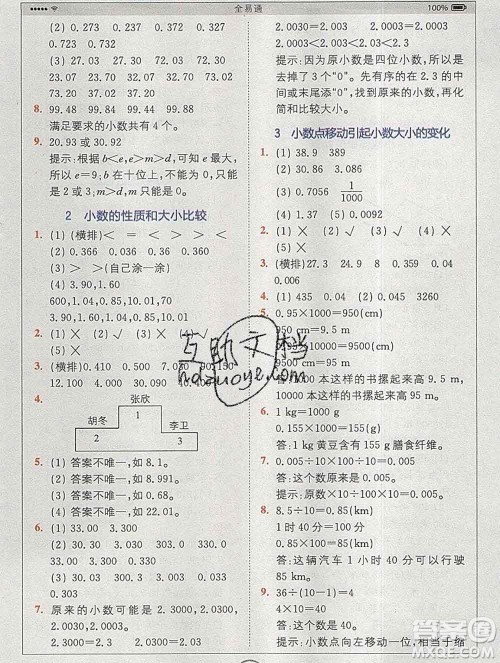 全易通
100%
(2) 0.273 0.327 0.237 0.372
0.723 0.732
(3) 27.30 37.20 23.70 32.70
73.20 72.30
8. 99.48 99.84 99.88 99.44
满足要求的小数共有4个。
9. 20.93 或 30.92
提示:根据b<e,e>m>d,可知e最大,
所以e是9;b在十位上,不能为0,只能
是2或3;m>d,m只能为2,d只能为0。
2 小数的性质和大小比较
1. (1) (横排)< = < > < >
(2) 0.333 0.036 0.360 0.36
(3) > > (自己涂一涂)
(4) 3.90,1.60
600,1.04,0.85,10.01,70
3.90,1.60,1.04,0.85,10.01
2. (1) × (2) √ (3) × (4) √
3. (横排)0.410 0.830 90.150
12.100 4.000 10.000 30.300
4.
张欣
胡冬 1 李卫
2 3
5. (1) 答案不唯一,如 8.1。
(2) 答案不唯一,如 8.991。
(3) 答案不唯一,如 6.28。
(4) 答案不唯一,如 22.01。
6. (1) 33.00 3.300
(2) 0.330 0.303 3.300 3.030
3.003 33.00
(3) 0.033 3.003 0.303 0.330
3.030 3.300 33.00
7. 原来的小数可能是 2.3000,2.0300,
2.0030,2.0003。
2.3000=2.3 2.0300=2.03
2.0030=2.003 2.0003=2.0003
2.0003<2.003<2.03<2.3
提示:因为原小数是四位小数,所以是
去掉了3个“0”。先有序的在2.3的中
间或末尾添“0”,找到原来的小数,再化
简和比较大小。
3 小数点移动引起小数大小的变化
1. (1) 38.9 389
(2) 30.86 3.086
(3) 0.7056 1/1000
(4) 1.35 0.0092
2. (1) × (2) √ (3) √ (4) ×
3. (横排)27.3 24.9 8 0.359 0.04
0.008
4. (1) 435 0.04 (2) 0.043 3260
5. 0.95×1000=950(cm)
950 cm=9.5 m
0.95×10000=9500(cm)
9500 cm=95 m
答:1000 本这样的书摞起来高 9.5 m,
10000 本这样的书摞起来高 95 m。
6. 1 kg=1000 g
0.155×1000=155(g)
答:1 kg黄豆含有155 g膳食纤维。
7. 0.005÷10×100÷10=0.005
答:这个数原来是 0.005。
提示:原数×10÷100×10=0.005。
8. 8.5÷10=0.85(km)
1 时 40 分=100 分
0.85×100=85(km)
答:这辆汽车 1 小时 40 分可以行驶
85 km。
9. 36÷(10-1)=4
4×10=40
答:这个数原来是 40。
提示:小数点向左移动一位,相当于缩
互助文档
hdzuoye.com
答案圈
MXQE.COM